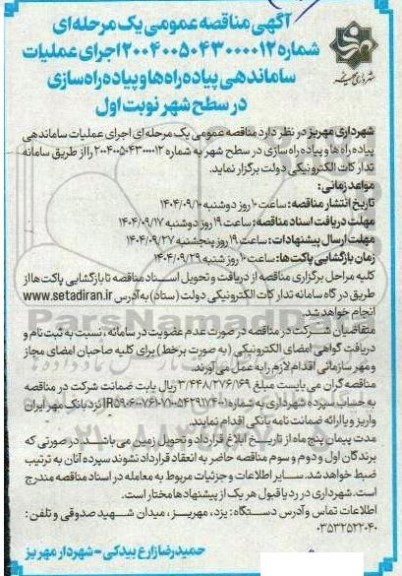 آگهی مناقصه عمومی یک مرحله ای
شماره ۲۰۰۴۰۰۵۰۴۳۰۰۰۰۱۲ اجرای عملیات
ساماندهی پیاده راه ها و پیاده راه سازی
در سطح شهر نوبت اول
شهرداری مهریز
شهرداری مهریز در نظر دارد مناقصه عمومی یک مرحله ای اجرای عملیات ساماندهی
پیاده راه ها و پیاده راه سازی در سطح شهر به شماره ۲۰۰۴۰۰۵۰۴۳۰۰۰۰۱۲ را از طریق سامانه
تدارکات الکترونیکی دولت برگزار نماید.
مواعد زمانی:
تاریخ انتشار مناقصه: ساعت ۱۰ روز دوشنبه ۱۴۰۴/۰۹/۱۰
مهلت دریافت اسناد مناقصه: ساعت ۱۹ روز دوشنبه ۱۴۰۴/۰۹/۱۷
مهلت ارسال پیشنهادات: ساعت ۱۹ روز پنجشنبه ۱۴۰۴/۰۹/۲۷
زمان بازگشایی پاکت ها: ساعت ۱۰ روز شنبه ۱۴۰۴/۰۹/۲۹
کلیه مراحل برگزاری مناقصه از دریافت و تحویل اسناد مناقصه تا بازگشایی پاکت ها از
طریق درگاه سامانه تدارکات الکترونیکی دولت (ستاد) به آدرس www.setadiran.ir
انجام خواهد شد.
متقاضیان شرکت در مناقصه در صورت عدم عضویت در سامانه، نسبت به ثبت نام و
دریافت گواهی امضای الکترونیکی (به صورت برخط) برای کلیه صاحبان امضای مجاز
و مهر سازمانی اقدام لازم را به عمل می آورند.
مناقصه گران می بایست مبلغ ۳/۴۴۸/۲۷۶/۱۶۹ ریال بابت ضمانت شرکت در مناقصه
به حساب سپرده شهرداری به شماره نزد بانک مهر ایران
واریز و یا ارائه ضمانت نامه بانکی اقدام نمایند.
مدت پیمان پنج ماه از تاریخ ابلاغ قرارداد و تحویل زمین می باشد. در صورتی که
برندگان اول و دوم و سوم مناقصه حاضر به انعقاد قرارداد نشوند سپرده آنان به ترتیب
ضبط خواهد شد. سایر اطلاعات و جزئیات مربوط به معامله در اسناد مناقصه مندرج
است. شهرداری در رد یا قبول هر یک از پیشنهادها مختار است.
اطلاعات تماس و آدرس دستگاه: یزد، مهریز، میدان شهید صدوقی و تلفن:
۰۳۵۳۲۵۲۲۰۴۰
حمیدرضا زارع بیدکی - شهردار مهریز